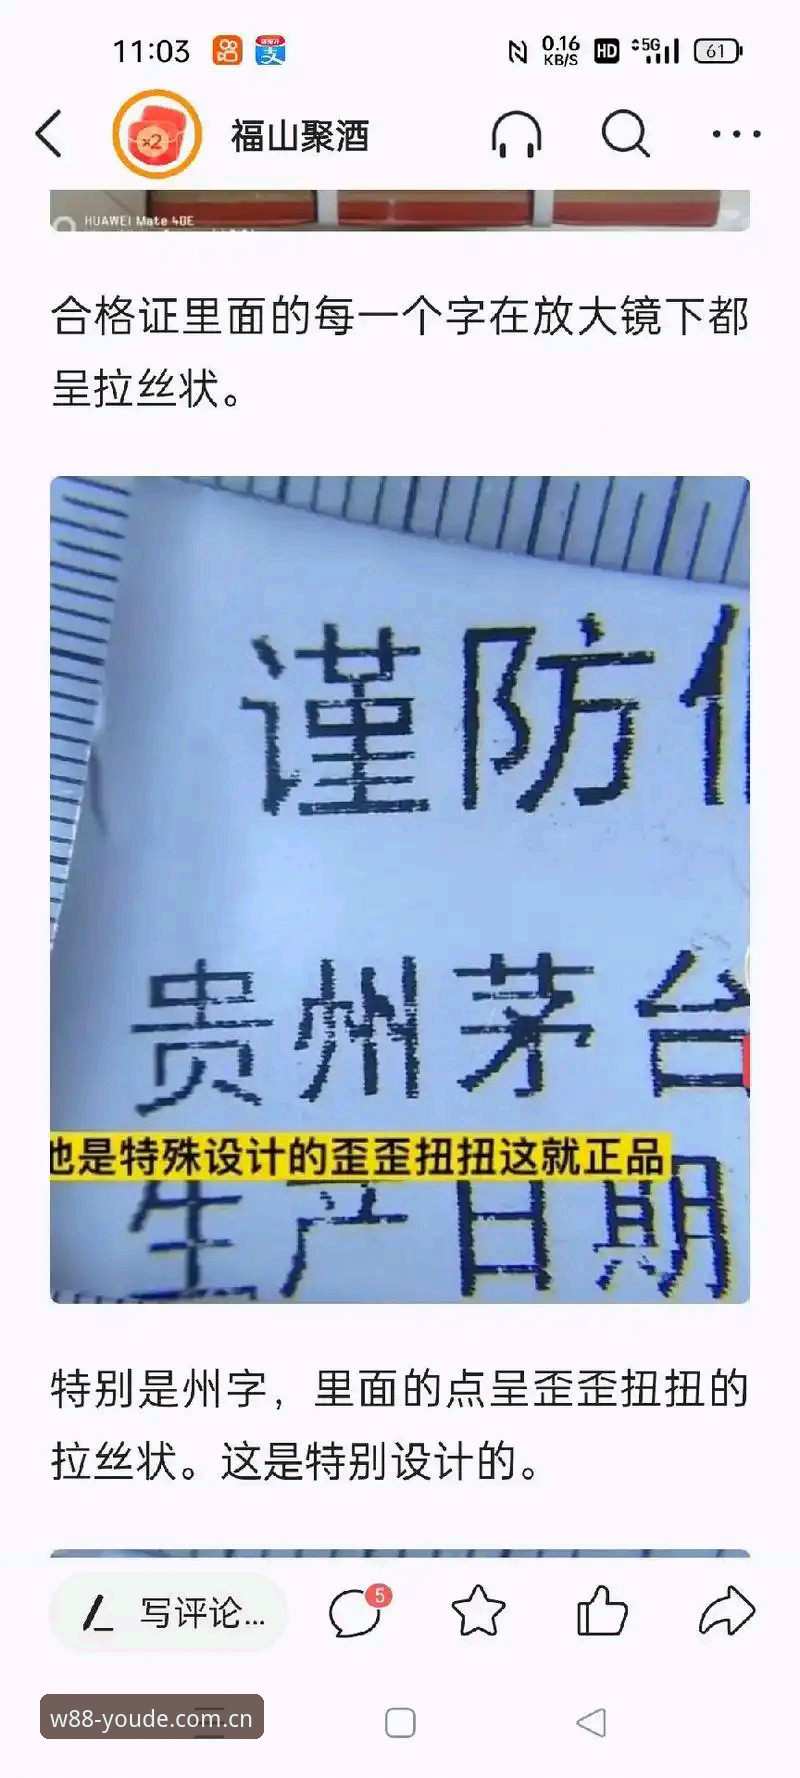 11:03
0.16
KB/S
HD
5G
61
x2
福山聚酒
HUAWEI Mate 40E
合格证里面的每一个字在放大镜下都
呈拉丝状。
谨防
贵州茅台
也是特殊设计的歪歪扭扭这就正品
生产日期
特别是州字，里面的点呈歪歪扭扭的
拉丝状。这是特别设计的。
写评论...
5
w88-youde.com.cn